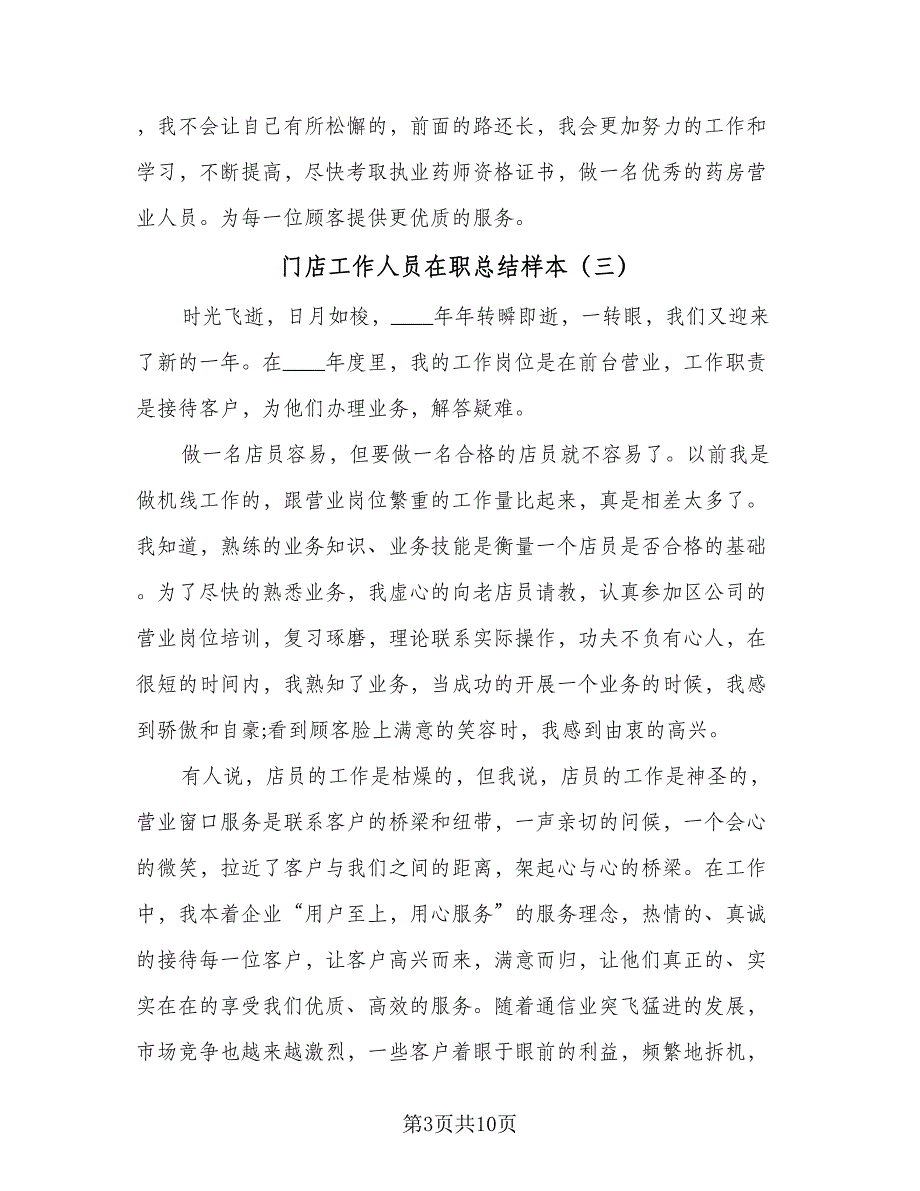 ，我不会让自己有所松懈的，前面的路还长，我会更加努力的工作和
学习，不断提高，尽快考取执业药师资格证书，做一名优秀的药房营
业人员。为每一位顾客提供更优质的服务。
门店工作人员在职总结样本（三）
时光飞逝，日月如梭，____年年转瞬即逝，一转眼，我们又迎来
了新的一年。在____年度里，我的工作岗位是在前台营业，工作职责
是接待客户，为他们办理业务，解答疑难。
做一名店员容易，但要做一名合格的店员就不容易了。以前我是
做机线工作的，跟营业岗位繁重的工作量比起来，真是相差太多了。
我知道，熟练的业务知识、业务技能是衡量一个店员是否合格的基础
。为了尽快的熟悉业务，我虚心的向老店员请教，认真参加区公司的
营业岗位培训，复习琢磨，理论联系实际操作，功夫不负有心人，在
很短的时间内，我熟知了业务，当成功的开展一个业务的时候，我感
到骄傲和自豪;看到顾客脸上满意的笑容时，我感到由衷的高兴。
有人说，店员的工作是枯燥的，但我说，店员的工作是神圣的，
营业窗口服务是联系客户的桥梁和纽带，一声亲切的问候，一个会心
的微笑，拉近了客户与我们之间的距离，架起心与心的桥梁。在工作
中，我本着企业“用户至上，用心服务”的服务理念，热情的、真诚
的接待每一位客户，让客户高兴而来，满意而归，让他们真正的、实
实在在的享受我们优质、高效的服务。随着通信业突飞猛进的发展，
市场竞争也越来越激烈，一些客户着眼于眼前的利益，频繁地拆机，
第3页共10页